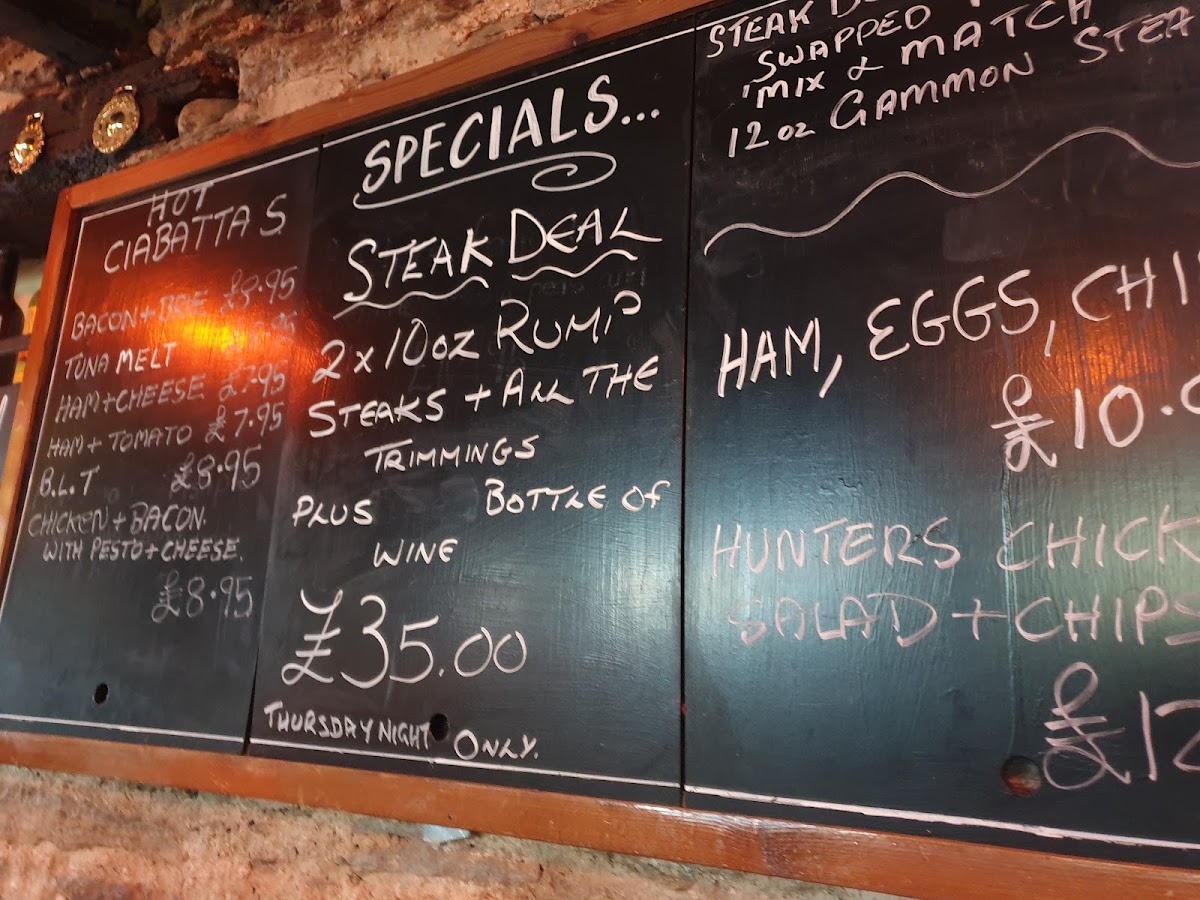 HOT
CIABATTAS
BACON + BRIE £8.95
TUNA MELT
HAM + CHEESE £7.95
HAM + TOMATO £7.95
B.L.T £8.95
CHICKEN + BACON.
WITH PESTO + CHEESE.
£8.95
SPECIALS...
STEAK DEAL
2 x 10oz RUMP
STEAKS + ALL THE
TRIMMINGS
PLUS BOTTLE OF
WINE
£35.00
THURSDAY NIGHT ONLY.
STEAK
SWAPPED
MIX & MATCH
12oz GAMMON
HAM, EGGS,
£10.
HUNTERS
SALAD + CHIPS
£12